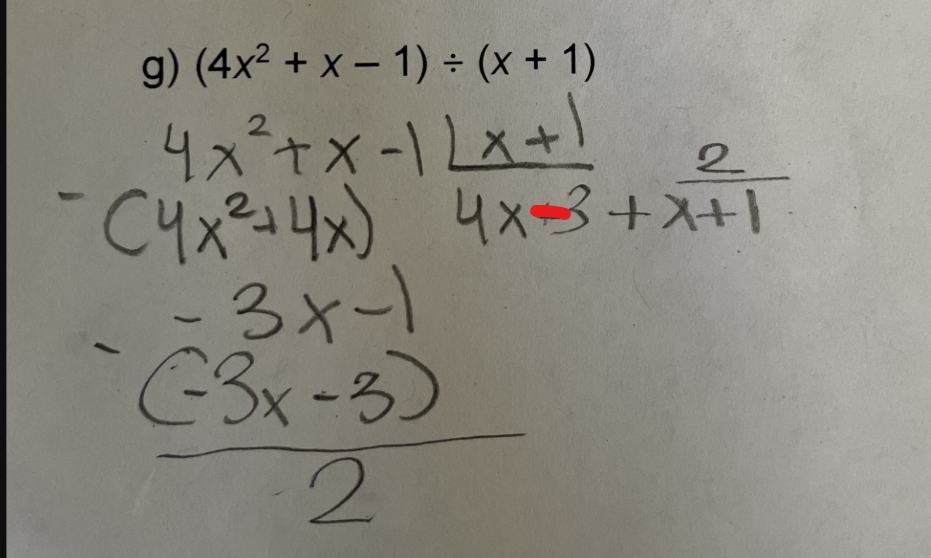 g) (4x² + x – 1) ÷ (x + 1)
4x²+x-1 x+1
-(4x²+4x) 4x-3+2/(x+1)
-3x-1
-(-3x-3)
2